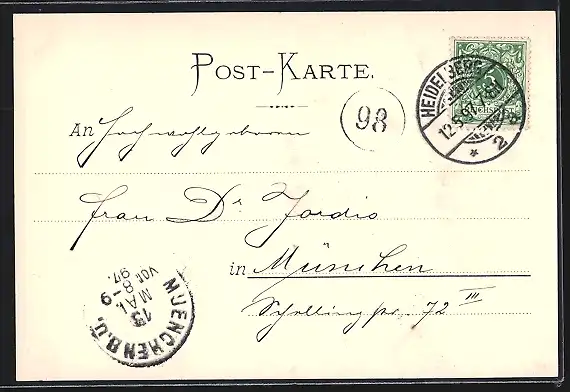 POST-KARTE.
98
HEIDELBERG
12.5.97.7-8N
* 2 a
An Hochwohlgeboren
Frau Dr Jordis
in München
Schellingstr. 72 III
MUENCHEN B.Ü.
13
MAI.
Vor. 8-9
97.